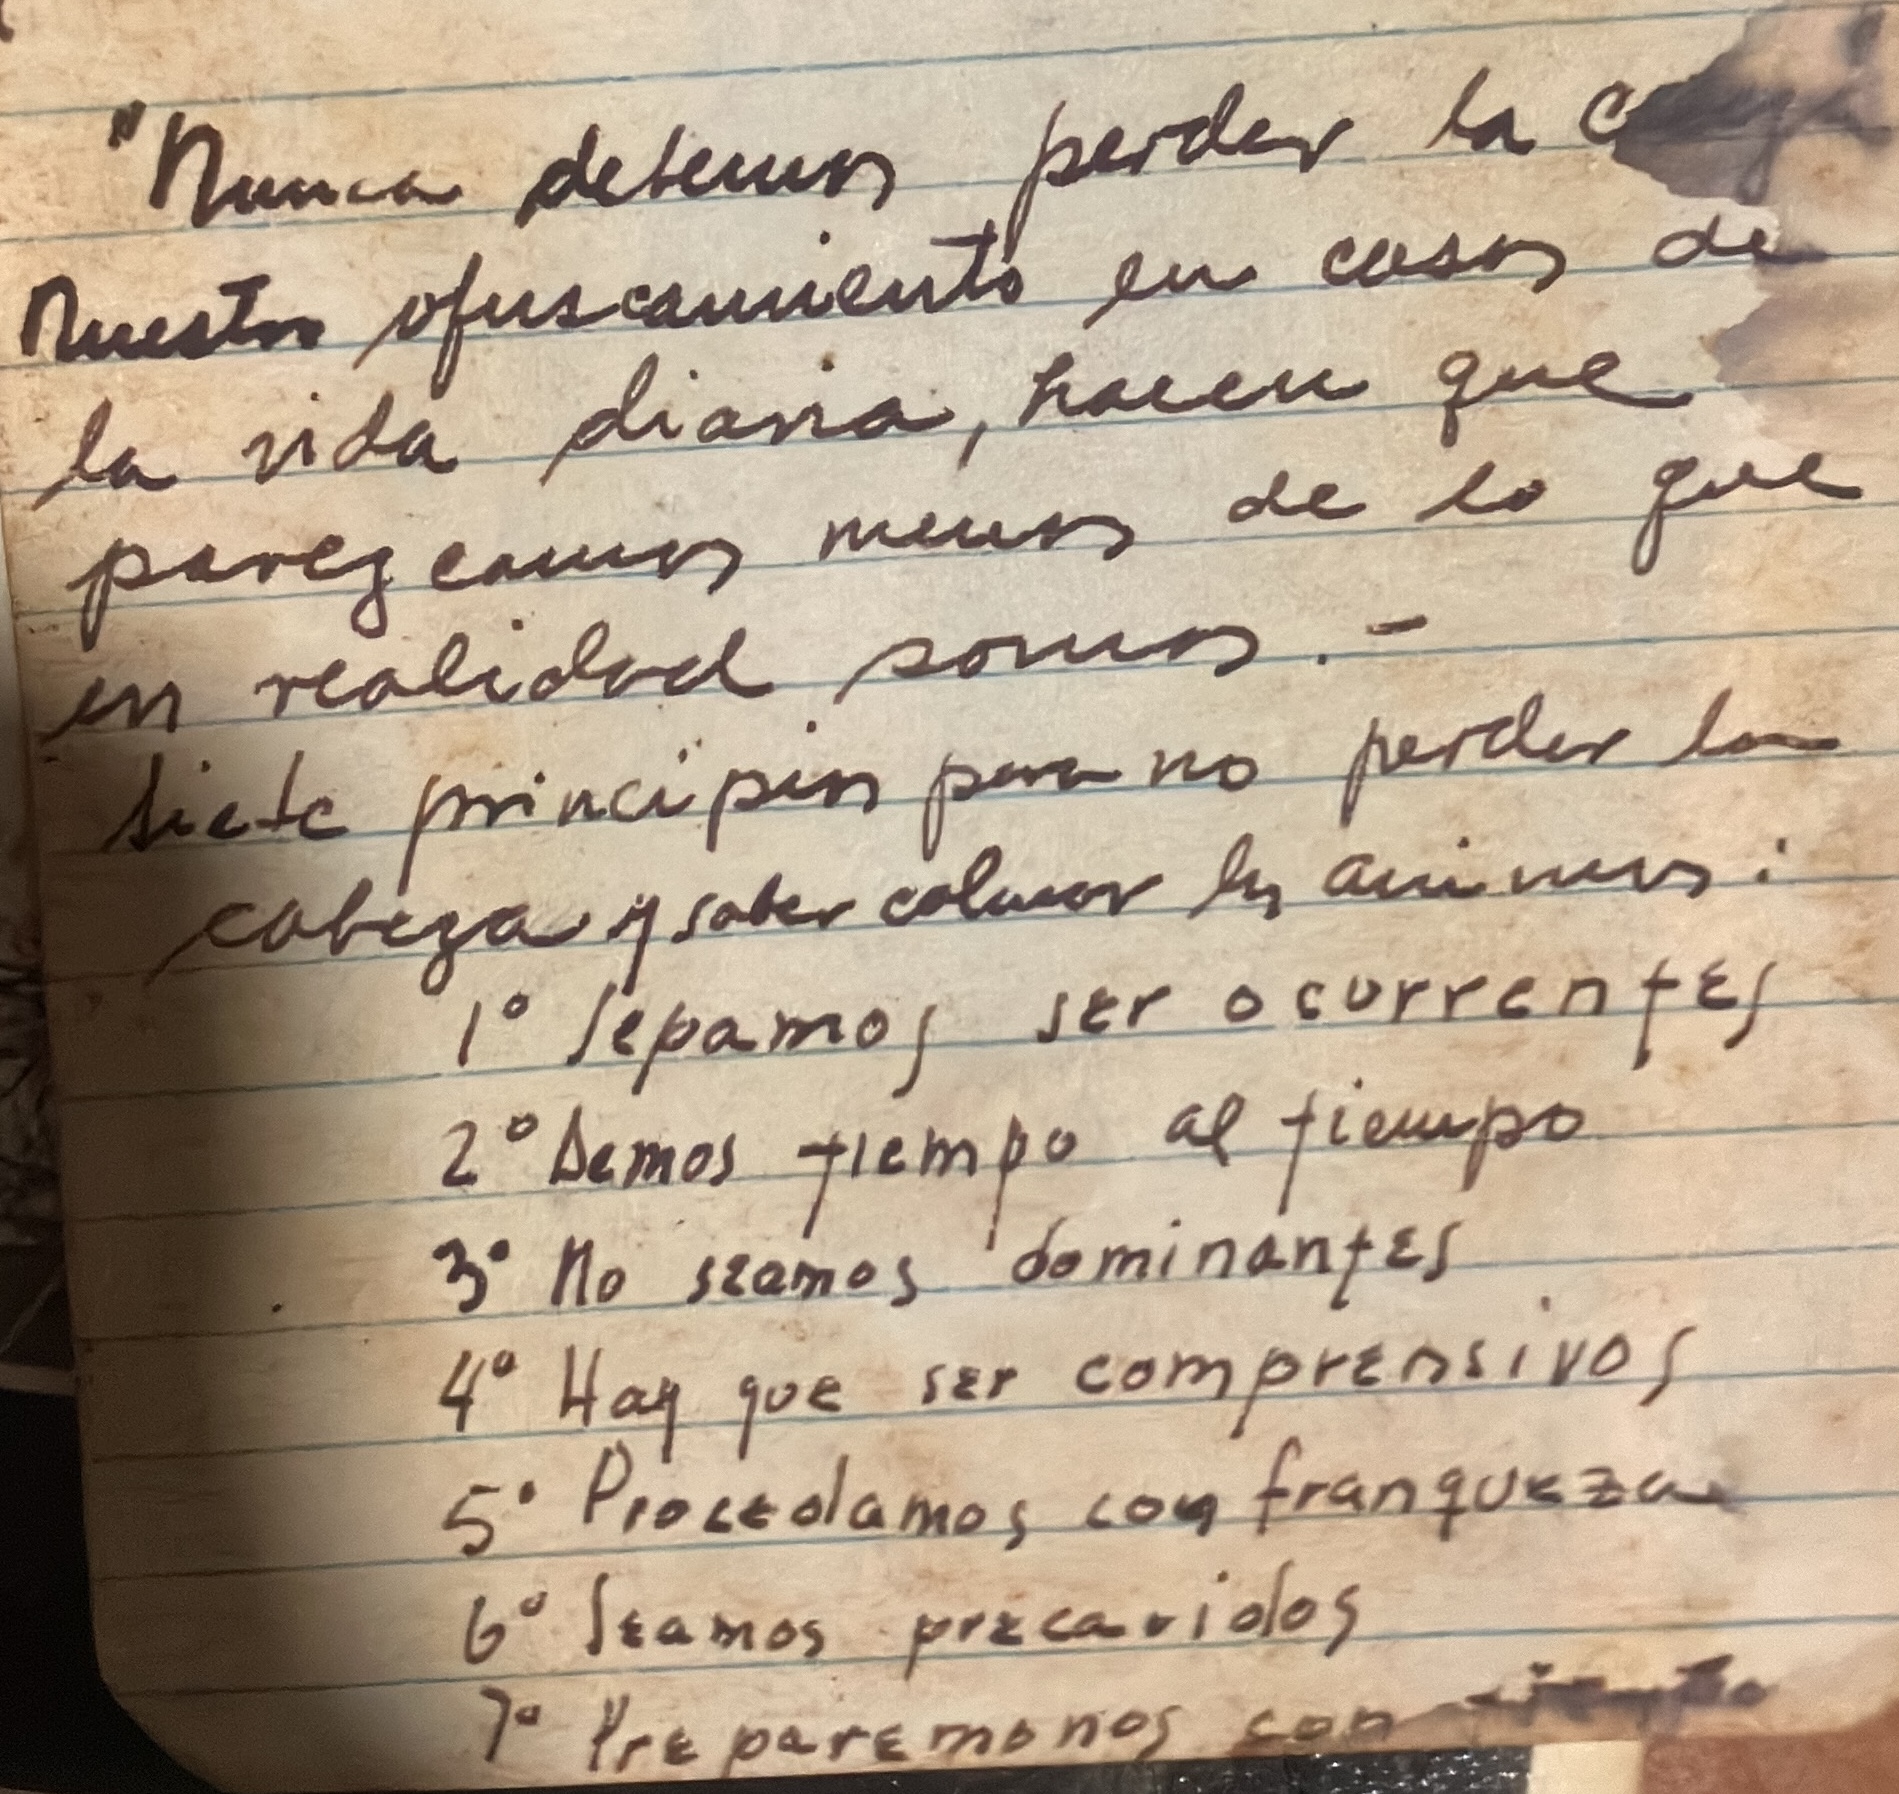 "Nunca debemos perder la
Nuestro ofuscamiento en casos de
la vida diaria, hacen que
parezcamos menos de lo que
en realidad somos.-
Siete principios para no perder la
cabeza y saber calmar los animos:
1º Sepamos ser ocurrentes
2º Demos tiempo al tiempo
3º No seamos dominantes
4º Hay que ser comprensivos
5º Procedamos con franqueza
6º Seamos precavidos
7º Preparemonos con